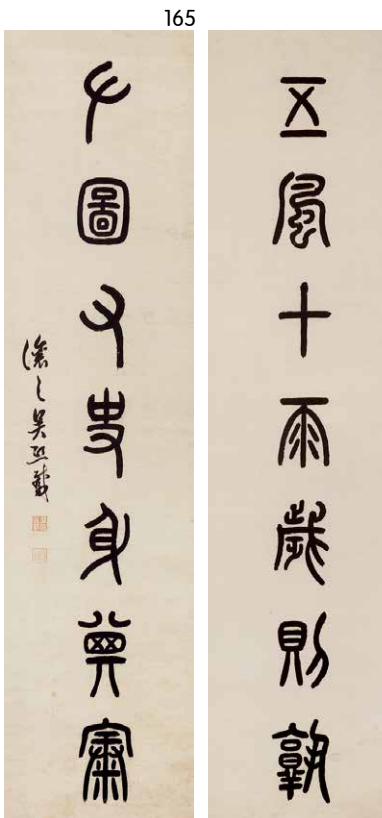 165
五風十雨歲則孰
左圖右史身
讓之吳熙載